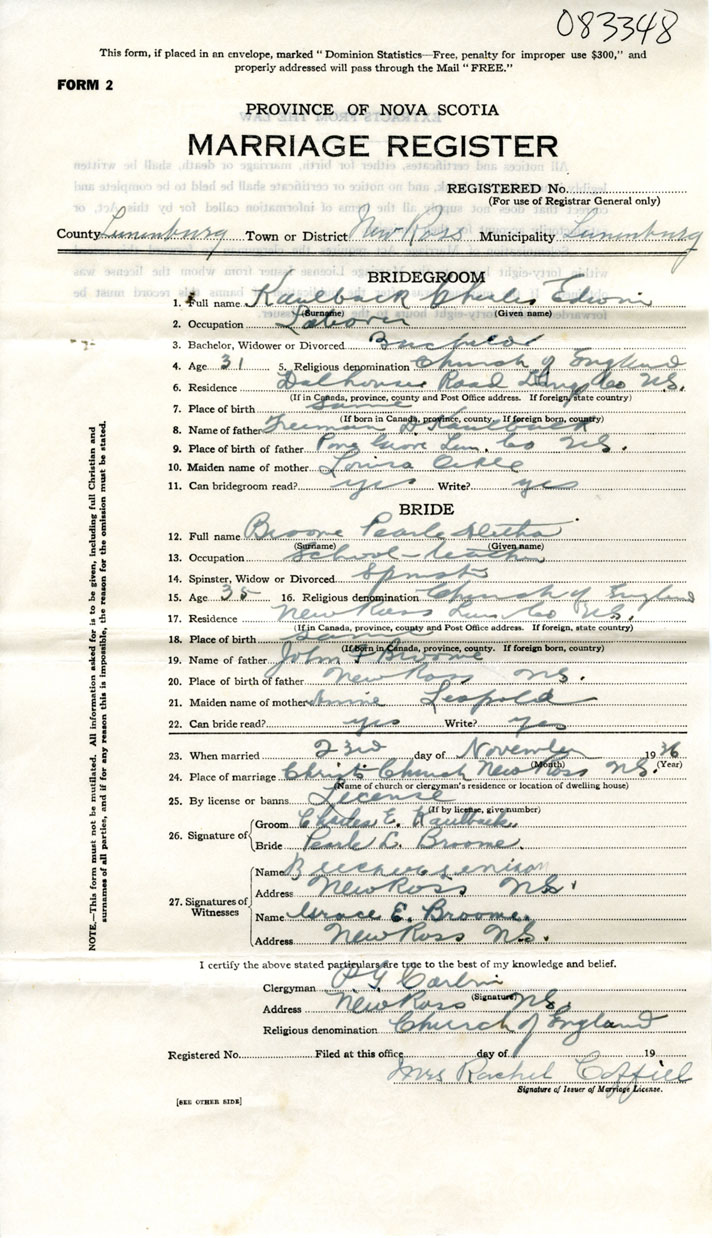 083348
This form, if placed in an envelope, marked "Dominion Statistics—Free, penalty for improper use $300," and
properly addressed will pass through the Mail "FREE."
FORM 2
PROVINCE OF NOVA SCOTIA
MARRIAGE REGISTER
REGISTERED No.
(For use of Registrar General only)
County Lunenburg Town or District New Ross Municipality Lunenburg
BRIDEGROOM
1. Full name Kaulback Charles Edwin
(Surname) (Given name)
2. Occupation Laborer
3. Bachelor, Widower or Divorced Bachelor
4. Age 31 5. Religious denomination Church of England
6. Residence Dalhousie Road Lung Co N.S.
(If in Canada, province, county and Post Office address. If foreign, state country)
7. Place of birth Same
(If born in Canada, province, county. If foreign born, country)
8. Name of father Freeman D Kaulback
9. Place of birth of father Pine Grove Lun. Co N.S.
10. Maiden name of mother Louisa
11. Can bridegroom read? yes Write? yes
BRIDE
12. Full name Broome Pearl Letha
(Surname) (Given name)
13. Occupation School-teacher
14. Spinster, Widow or Divorced Spinster
15. Age 35 16. Religious denomination Church of England
17. Residence New Ross Lun. Co N.S.
(If in Canada, province, county and Post Office address. If foreign, state country)
18. Place of birth Same
(If born in Canada, province, county. If foreign born, country)
19. Name of father John Broome
20. Place of birth of father New Ross N.S.
21. Maiden name of mother Annie Leopold
22. Can bride read? yes Write? yes
23. When married 23rd day of November 1936
(Month) (Year)
24. Place of marriage Christ Church New Ross N.S.
(Name of church or clergyman's residence or location of dwelling house)
25. By license or banns License
(If by license, give number)
26. Signature of Groom Charles E. Kaulback
Bride Pearl L. Broome
27. Signatures of Witnesses Name
Address New Ross N.S.
Name Grace E. Broome
Address New Ross N.S.
I certify the above stated particulars are true to the best of my knowledge and belief.
Clergyman
(Signature)
Address New Ross N.S.
Religious denomination Church of England
Registered No. Filed at this office day of 19
Mrs Rachel
Signature of Issuer of Marriage License.
[SEE OTHER SIDE]
NOTE.—This form must not be mutilated. All information asked for is to be given, including full Christian and
surnames of all parties, and if for any reason this is impossible, the reason for the omission must be stated.